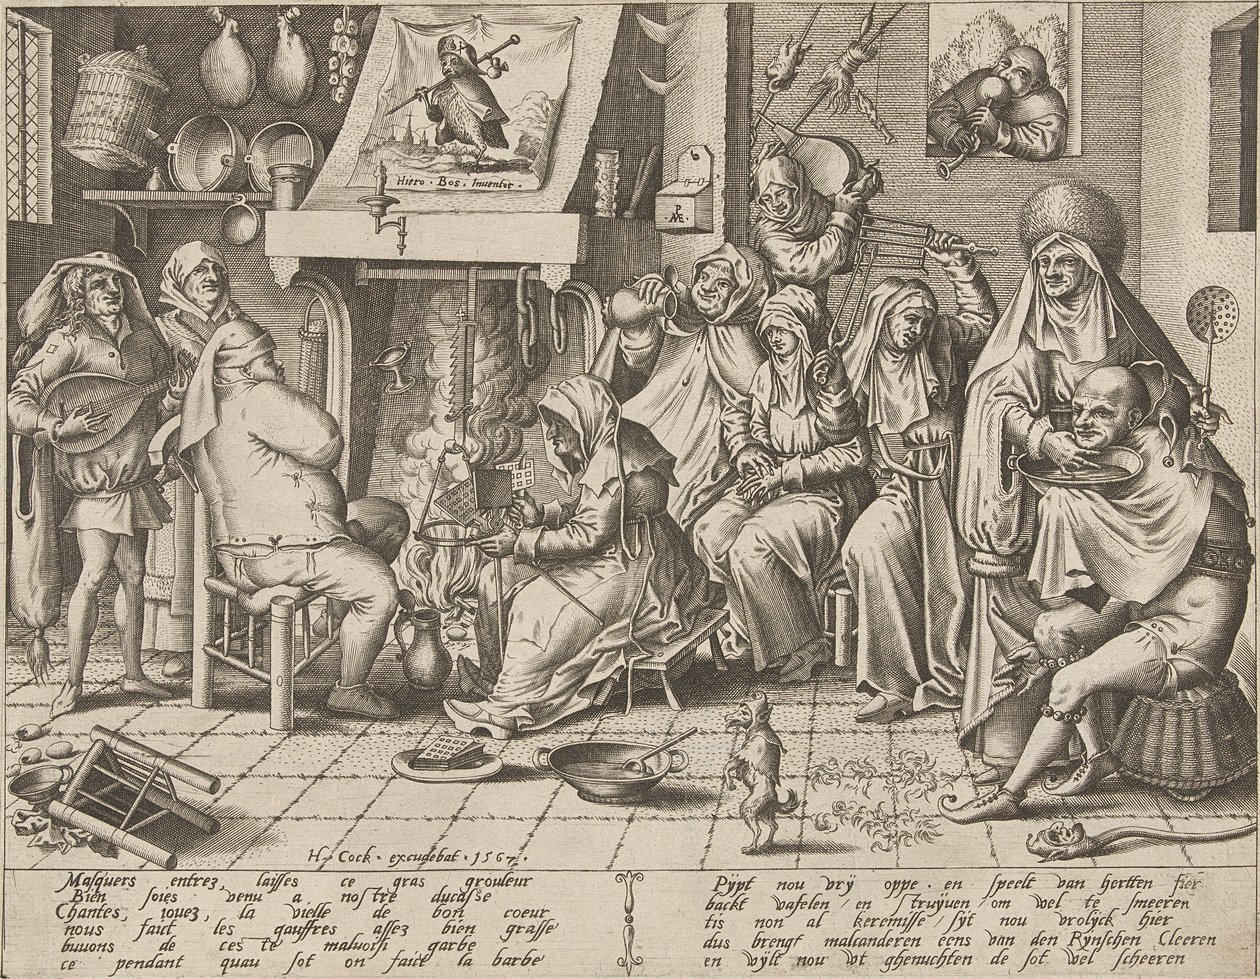 Hiero · Bos · Inventor ·
P
ME
H · Cock · excudebat · 1567 ·
Masquers entrez, laisses ce gras grouleur
Bien soies venu a nostre ducasse
Chantes, iouez, la vielle de bon coeur
nous faict les gauffres assez bien grasse
buuons de ces te maluoisi garbe
ce pendant quau sot on faict la barbe
Pÿpt nou vrÿ oppe · en speelt van hertten fier
backt vafelen / en struÿuen om wel te smeeren
tis non al keremisse / sÿt nou vrolÿck hier
dus brengt malcanderen eens van den Rÿnschen Cleeren
en wÿlt nou vt ghenuchten de sot wel scheeren